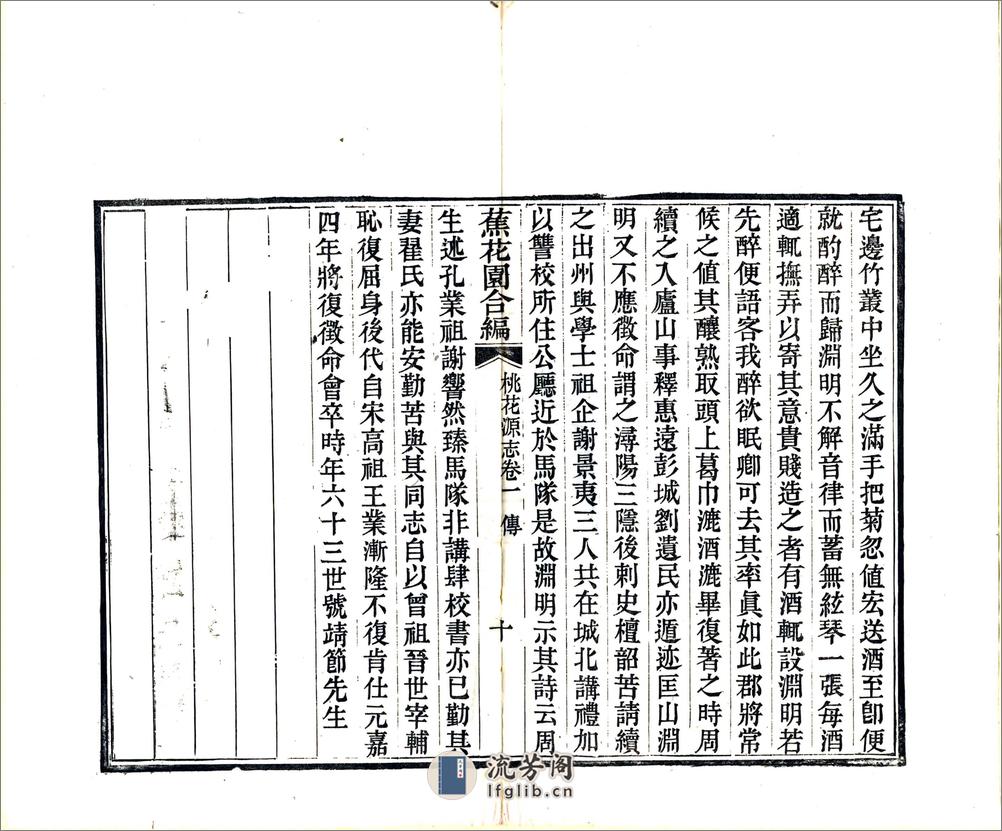 宅邊竹叢中坐久之滿手把菊忽値宏送酒至卽便
就酌醉而歸淵明不解音律而蓄無絃琴一張每酒
適輒撫弄以寄其意貴賤造之者有酒輒設淵明若
先醉便語客我醉欲眠卿可去其率眞如此郡將常
候之値其釀熟取頭上葛巾漉酒漉畢復著之時周
續之入廬山事釋惠遠彭城劉遺民亦遁迹匡山淵
明又不應徵命謂之潯陽三隱後刺史檀韶苦請續
之出州與學士祖企謝景夷三人共在城北講禮加
以讐校所住公廳近於馬隊是故淵明示其詩云周
蕉花園合編 桃花源志卷一 傳 十
生述孔業祖謝響然臻馬隊非講肆校書亦已勤其
妻翟氏亦能安勤苦與其同志自以曾祖晉世宰輔
恥復屈身後代自宋高祖王業漸隆不復肯仕元嘉
四年將復徵命會卒時年六十三世號靖節先生
流芳阁
lfglib.cn